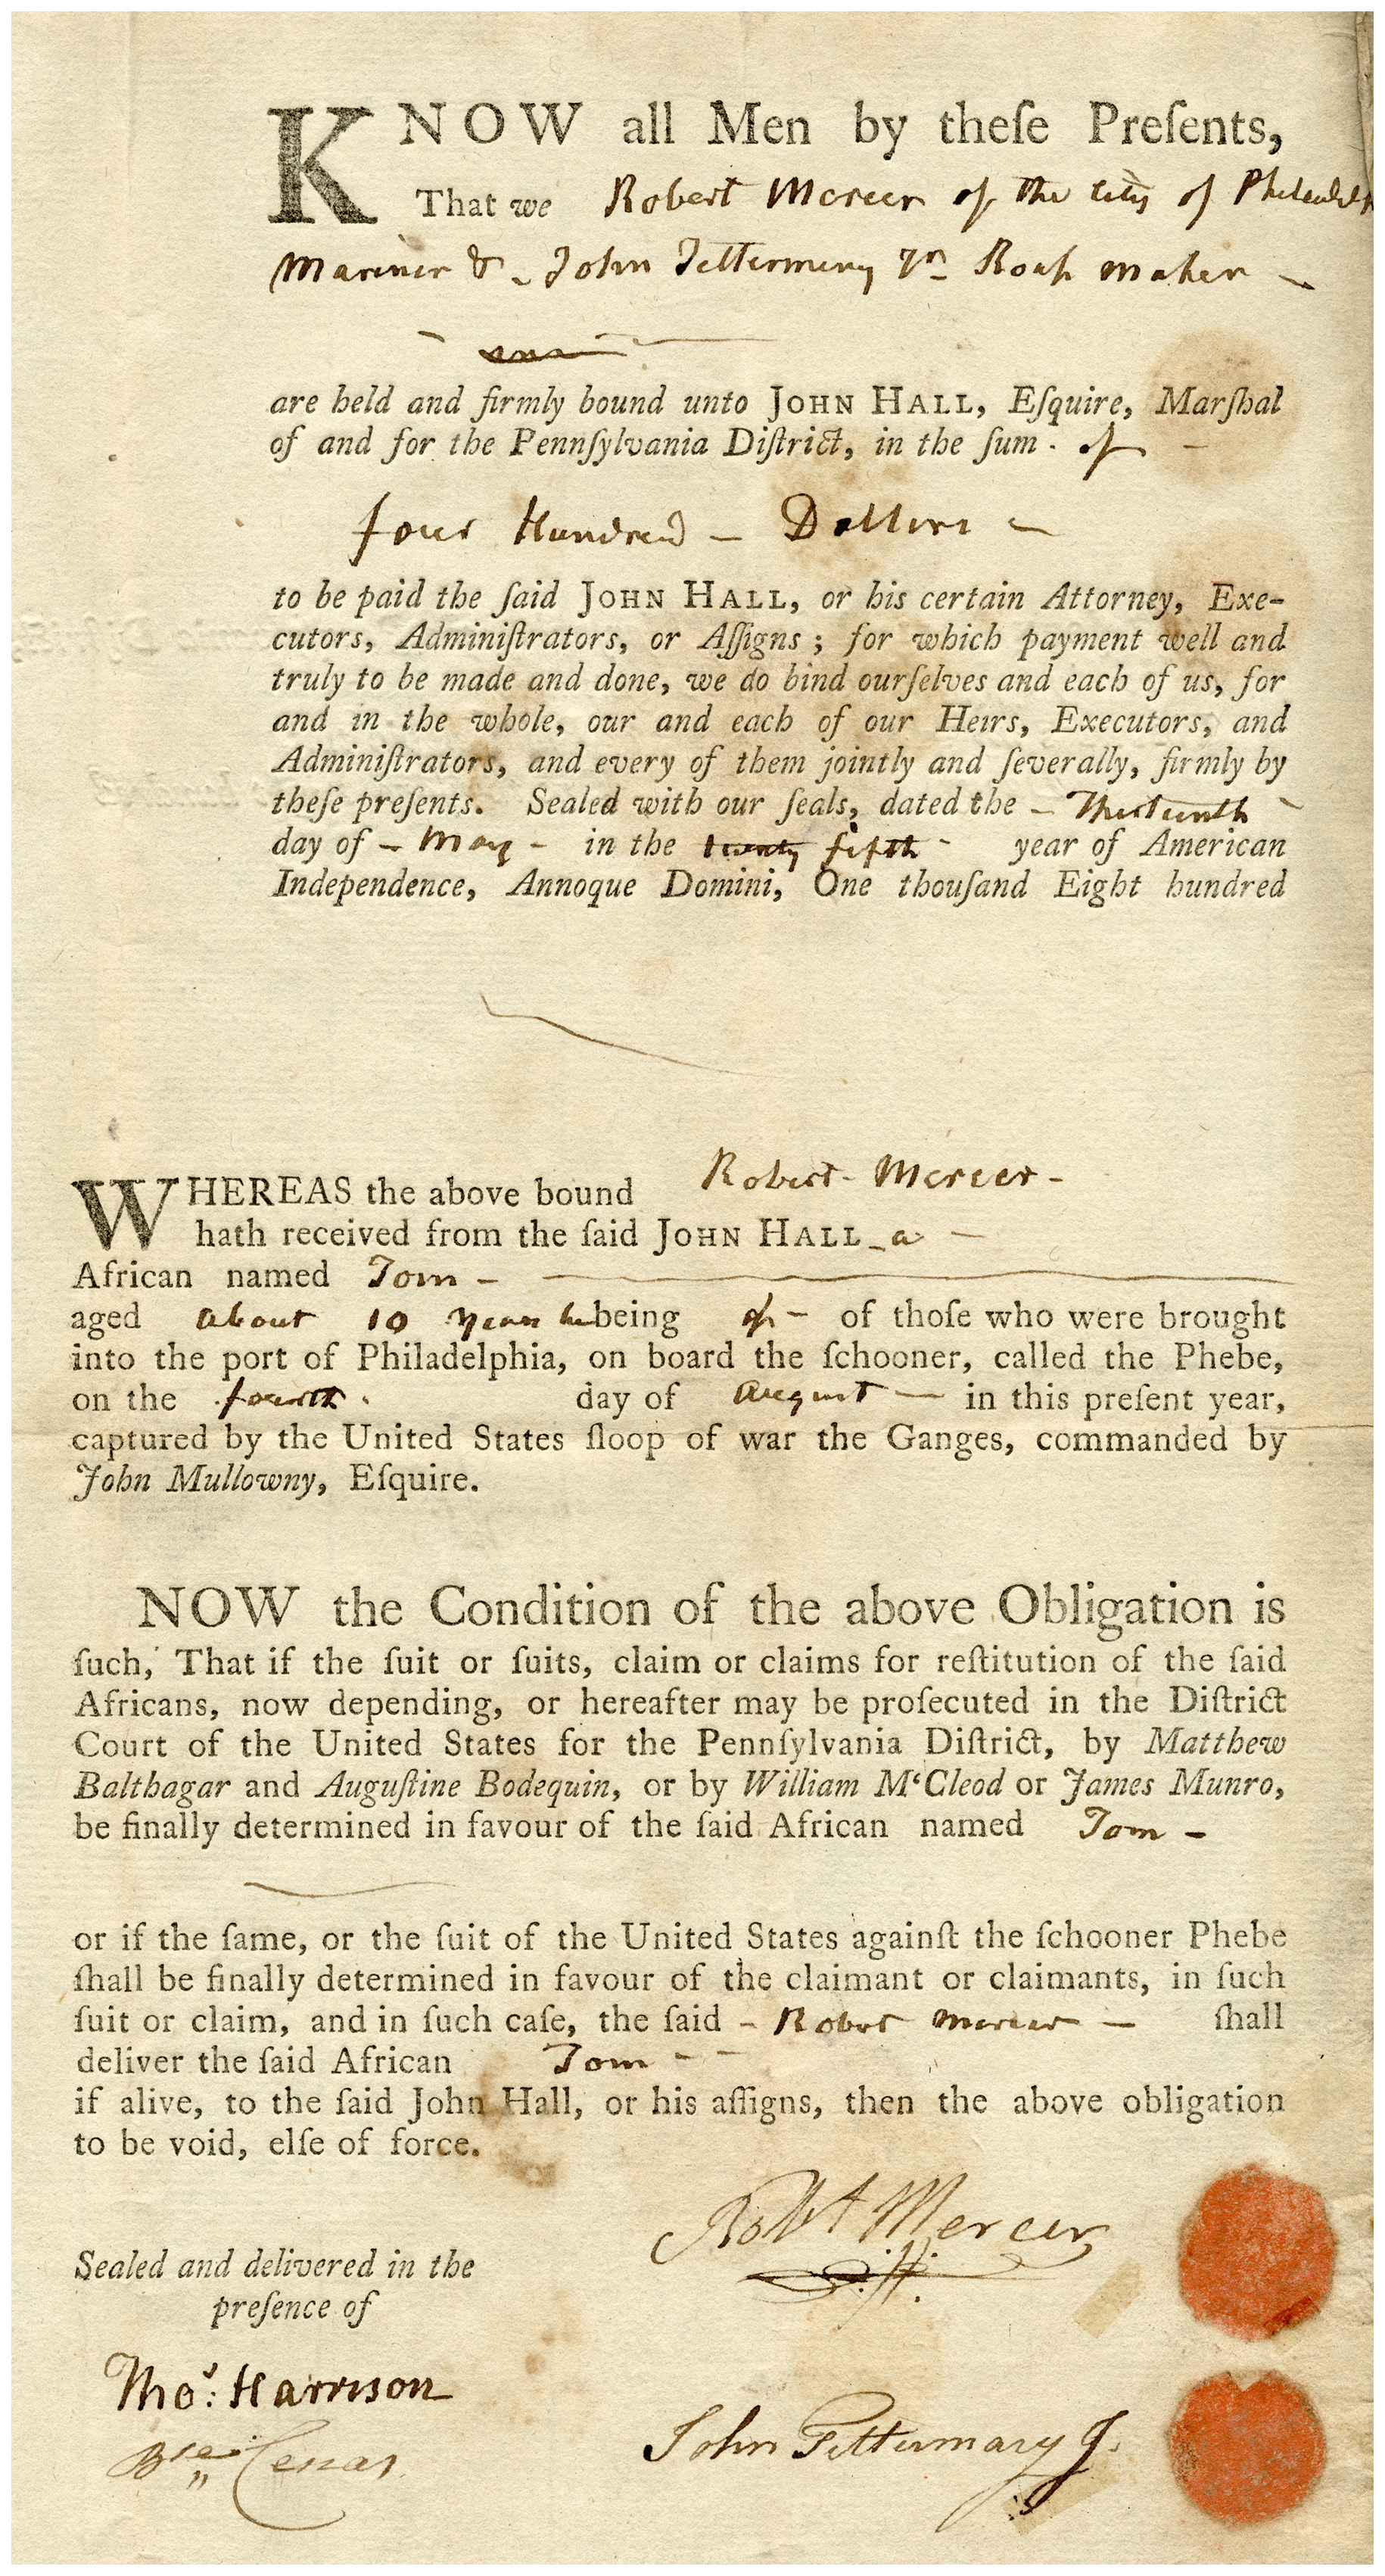 KNOW all Men by theſe Preſents,
That we Robert Mercer of the City of Philadelp
Mariner & John Tettermery Jn Roap maker
are held and firmly bound unto JOHN HALL, Eſquire, Marſhal
of and for the Pennſylvania Diſtrict, in the ſum of
four Hundred Dollers
to be paid the ſaid JOHN HALL, or his certain Attorney, Exe-
cutors, Adminiſtrators, or Aſſigns; for which payment well and
truly to be made and done, we do bind ourſelves and each of us, for
and in the whole, our and each of our Heirs, Executors, and
Adminiſtrators, and every of them jointly and ſeverally, firmly by
theſe preſents. Sealed with our ſeals, dated the Thirteenth
day of May in the twenty fifth year of American
Independence, Annoque Domini, One thouſand Eight hundred
Robert Mercer
WHEREAS the above bound
hath received from the ſaid JOHN HALL a
African named Tom
aged about 10 years being of thoſe who were brought
into the port of Philadelphia, on board the ſchooner, called the Phebe,
on the fourth day of August in this preſent year,
captured by the United States ſloop of war the Ganges, commanded by
John Mullowny, Eſquire.
NOW the Condition of the above Obligation is
ſuch, That if the ſuit or ſuits, claim or claims for reſtitution of the ſaid
Africans, now depending, or hereafter may be proſecuted in the Diſtrict
Court of the United States for the Pennſylvania Diſtrict, by Matthew
Balthagar and Auguſtine Bodequin, or by William M‘Cleod or James Munro,
be finally determined in favour of the ſaid African named Tom
or if the ſame, or the ſuit of the United States againſt the ſchooner Phebe
ſhall be finally determined in favour of the claimant or claimants, in ſuch
ſuit or claim, and in ſuch caſe, the ſaid Robert Mercer ſhall
deliver the ſaid African Tom
if alive, to the ſaid John Hall, or his aſſigns, then the above obligation
to be void, elſe of force.
Robt Mercer
Sealed and delivered in the
preſence of
Thos: Harrison
John Tettermary J.